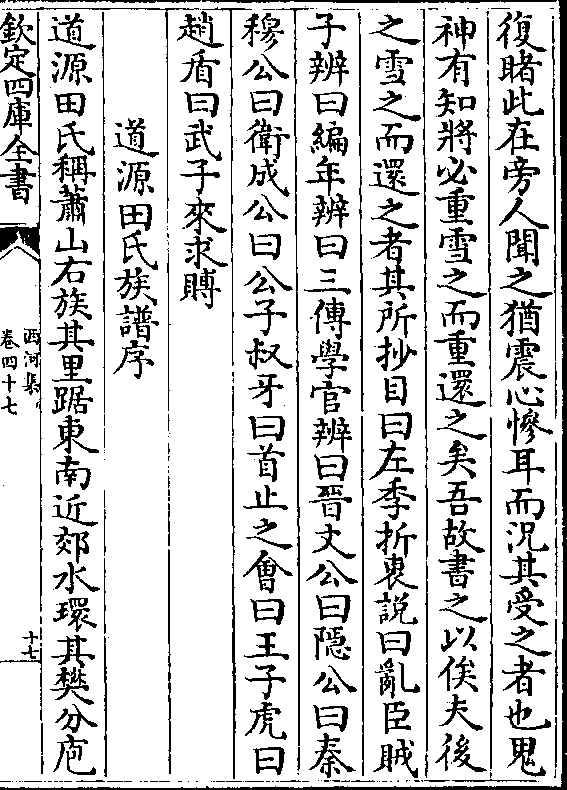 復睹此在旁人聞之猶震心慘耳而況其受之者也鬼
神有知將必重雪之而重還之矣吾故書之以俟夫後
之雪之而還之者其所抄目曰左季折衷說曰亂臣賊
子辨曰編年辨曰三傳學官辨曰晉文公曰隠公曰秦
穆公曰衛成公曰公子叔牙曰首止之會曰王子虎曰
趙盾曰武子來求賻
道源田氏族譜序
道源田氏稱蕭山右族其里踞東南近郊水環其樊分庖
欽定四庫全書
西河集
卷四十七
十七